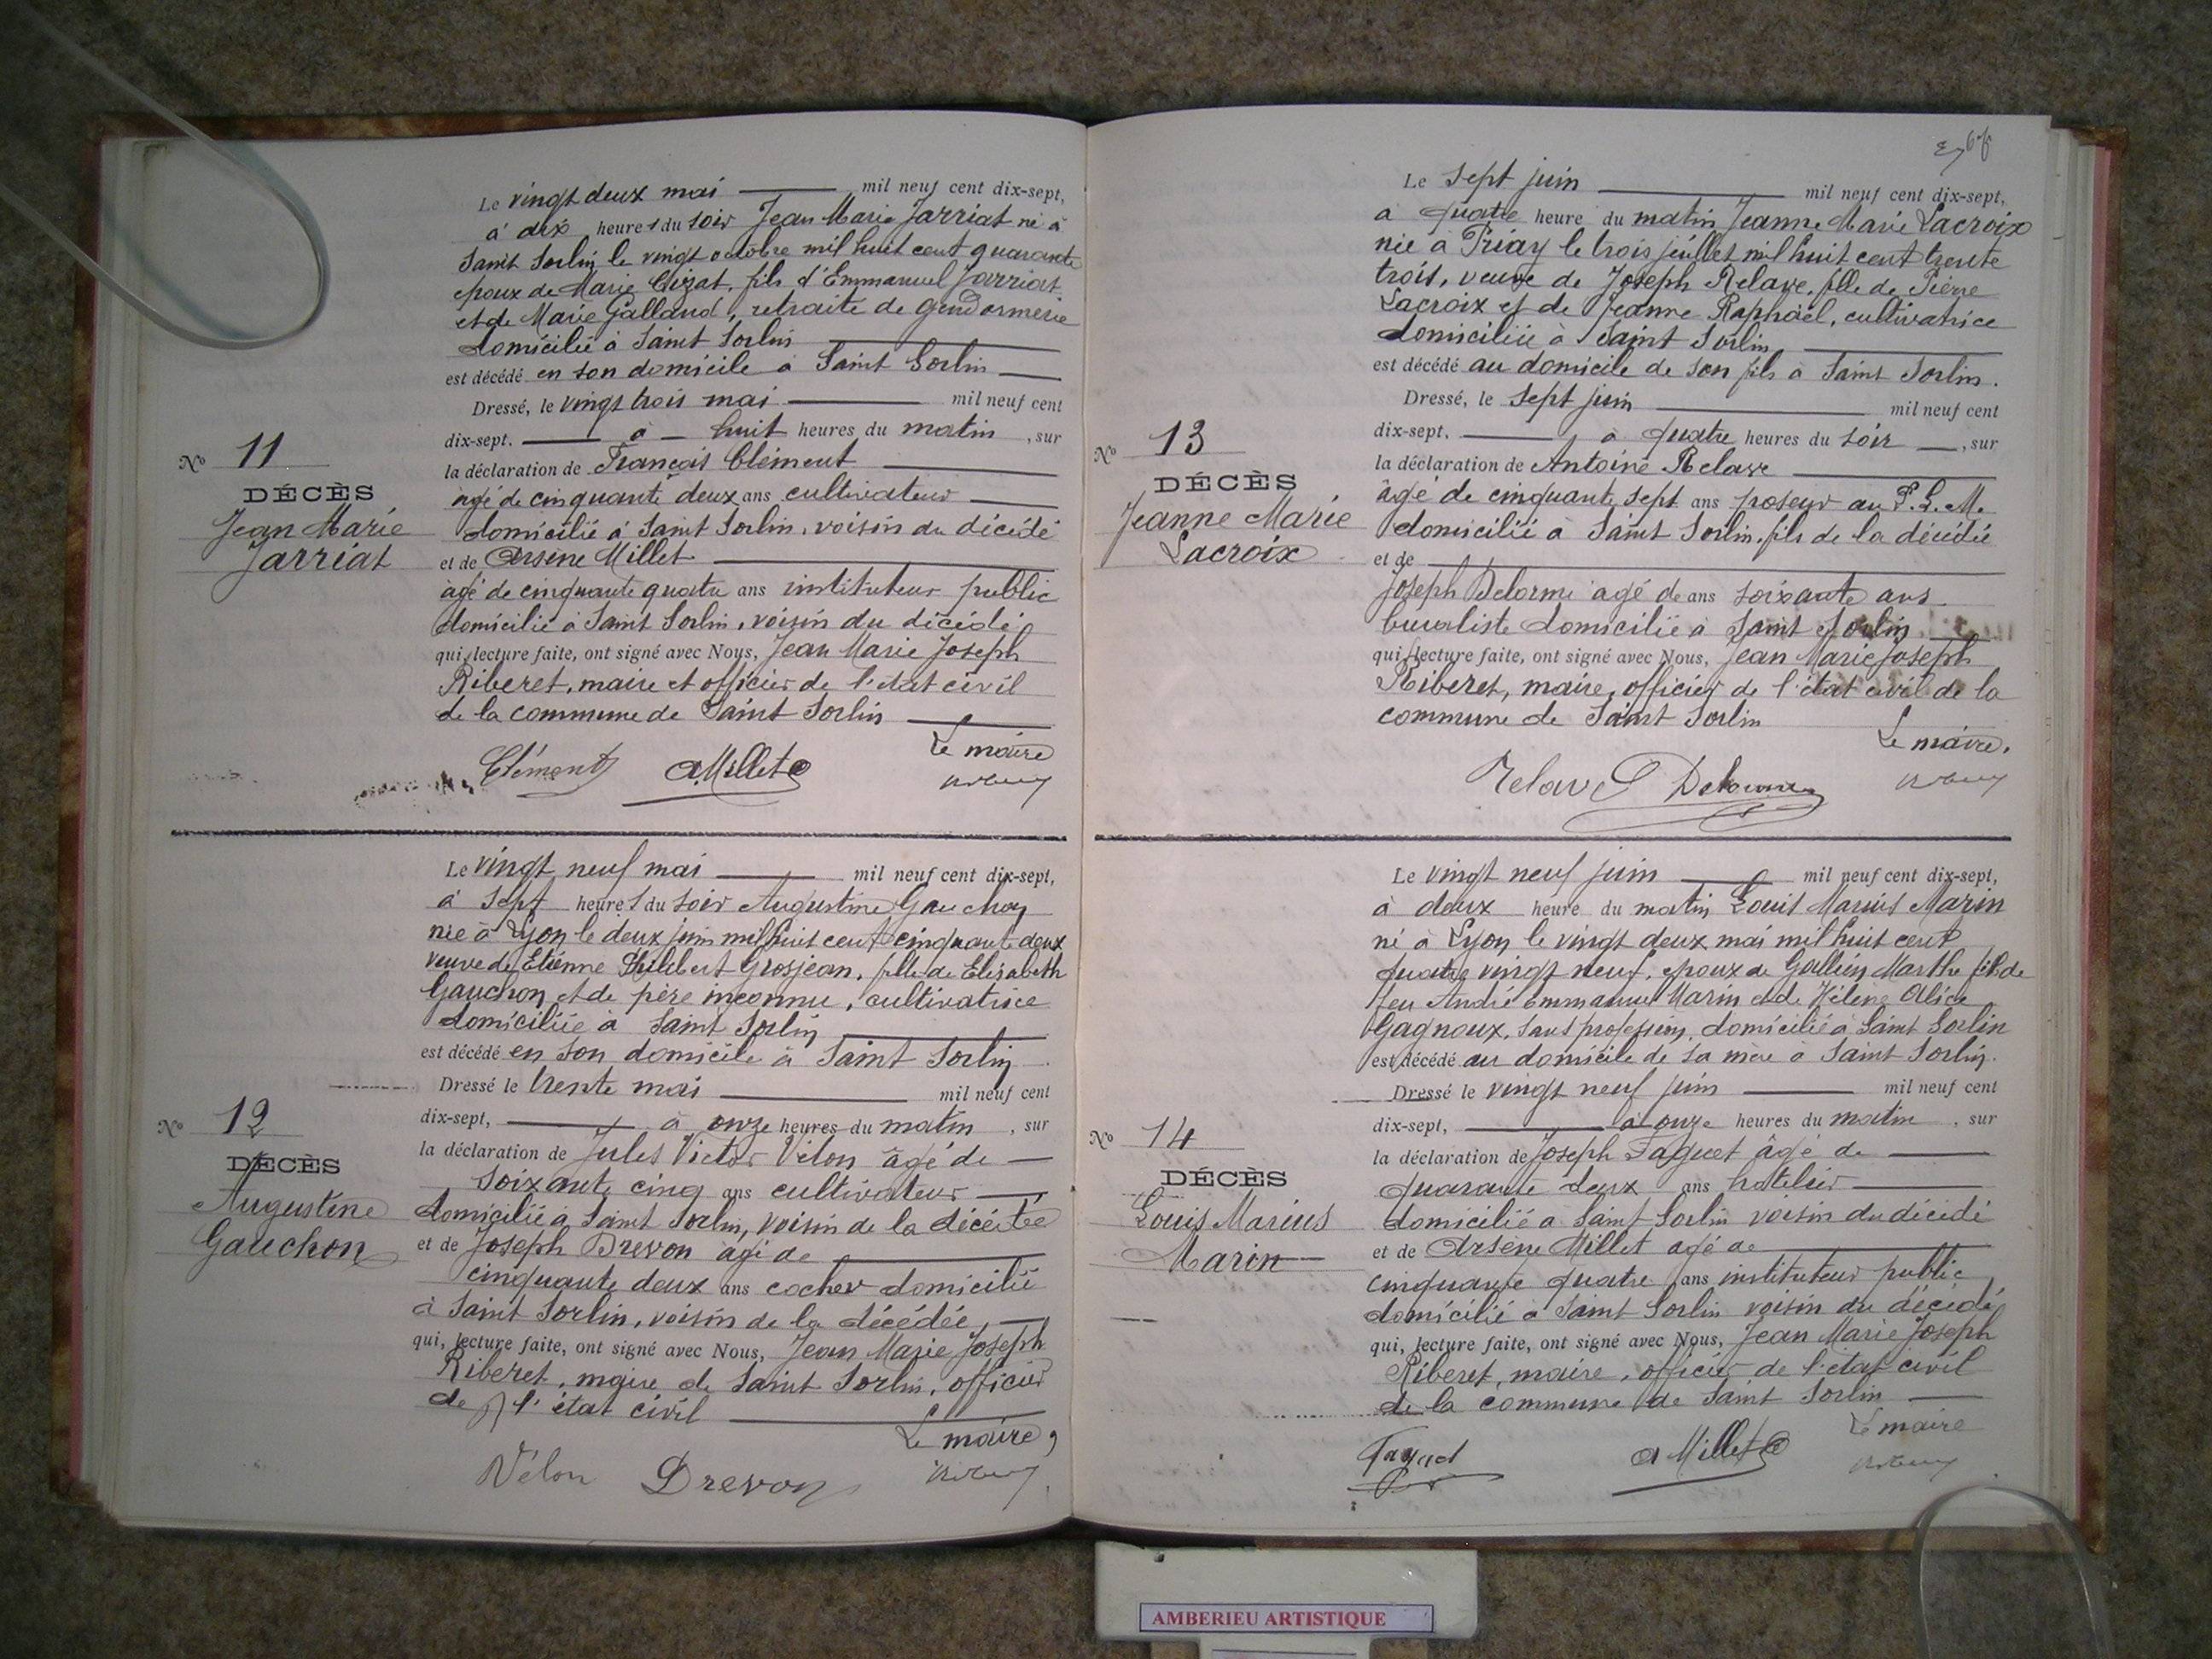 Le vingt deux mai mil neuf cent dix-sept,
à dix heures du soir Jean Marie Jarriat né à
Saint Sorlin le vingt octobre mil huit cent quarante
epoux de Marie Cizat, fils d'Emmanuel Jarriat
et de Marie Galland, retraité de gendarmerie
domicilié à Saint Sorlin
est décédé en son domicile à Saint Sorlin
Dressé, le vingt trois mai mil neuf cent
dix-sept, à huit heures du matin, sur
la déclaration de François Clément
âgé de cinquante deux ans cultivateur
domicilié à Saint Sorlin, voisin du décédé
et de Arsène Millet
âgé de cinquante quatre ans instituteur public
domicilié à Saint Sorlin, voisin du décédé
qui, lecture faite, ont signé avec Nous, Jean Marie Joseph
Riberet, maire et officier de l'état civil
de la commune de Saint Sorlin
Le maire
Clément AMillet
No 11
DÉCÈS
Jean Marie
Jarriat
Le vingt neuf mai mil neuf cent dix-sept,
à sept heures du soir Augustine Gauchon
née à Lyon le deux juin mil huit cent cinquante deux
veuve de Etienne Philibert Grosjean, fille de Elisabeth
Gauchon et de père inconnu, cultivatrice
domiciliée à Saint Sorlin
est décédé en son domicile à Saint Sorlin
Dressé le trente mai mil neuf cent
dix-sept, à onze heures du matin, sur
la déclaration de Jules Victor Vélon âgé de
soixante cinq ans cultivateur
domicilié à Saint Sorlin, voisin de la décédée
et de Joseph Drevon âgé de
cinquante deux ans cocher domicilié
à Saint Sorlin, voisin de la décédée,
qui, lecture faite, ont signé avec Nous, Jean Marie Joseph
Riberet, maire de Saint Sorlin, officier
de l'état civil
Le maire,
Vélon Drevon
No 12
DÉCÈS
Augustine
Gauchon
Le sept juin mil neuf cent dix-sept,
à quatre heure du matin Jeanne Marie Lacroix
née à Priay le trois juillet mil huit cent trente
trois, veuve de Joseph Relave, fille de Pierre
Lacroix et de Jeanne Raphaël, cultivatrice
domiciliée à Saint Sorlin
est décédé au domicile de son fils à Saint Sorlin.
Dressé, le sept juin mil neuf cent
dix-sept, à quatre heures du soir, sur
la déclaration de Antoine Relave
âgé de cinquante sept ans poseur au P.L.M.
domicilié à Saint Sorlin, fils de la décédée
et de
Joseph Delorme âgé de ans soixante ans
buraliste domicilié à Saint Sorlin
qui, lecture faite, ont signé avec Nous, Jean Marie Joseph
Riberet, maire, officier de l'état civil de la
commune de Saint Sorlin
Le maire.
Relave Delorme
No 13
DÉCÈS
Jeanne Marie
Lacroix
Le vingt neuf juin mil neuf cent dix-sept,
à deux heure du matin Louis Marius Marin
né à Lyon le vingt deux mai mil huit cent
quatre vingt neuf, epoux de Gallien Marthe fils de
feu André Emmanuel Marin et de Hélène Alice
Gagnoux, sans profession, domicilié à Saint Sorlin
est décédé au domicile de sa mère à Saint Sorlin.
Dressé le vingt neuf juin mil neuf cent
dix-sept, à onze heures du matin, sur
la déclaration de Joseph Faguet âgé de
quarante deux ans hôtelier
domicilié à Saint Sorlin voisin du décédé
et de Arsène Millet agé de
cinquante quatre ans instituteur public,
domicilié à Saint Sorlin voisin du décédé,
qui, lecture faite, ont signé avec Nous, Jean Marie Joseph
Riberet, maire, officier de l'état civil
de la commune de Saint Sorlin
Le maire
A Millet
No 14
DÉCÈS
Louis Marius
Marin
AMBERIEU ARTISTIQUE